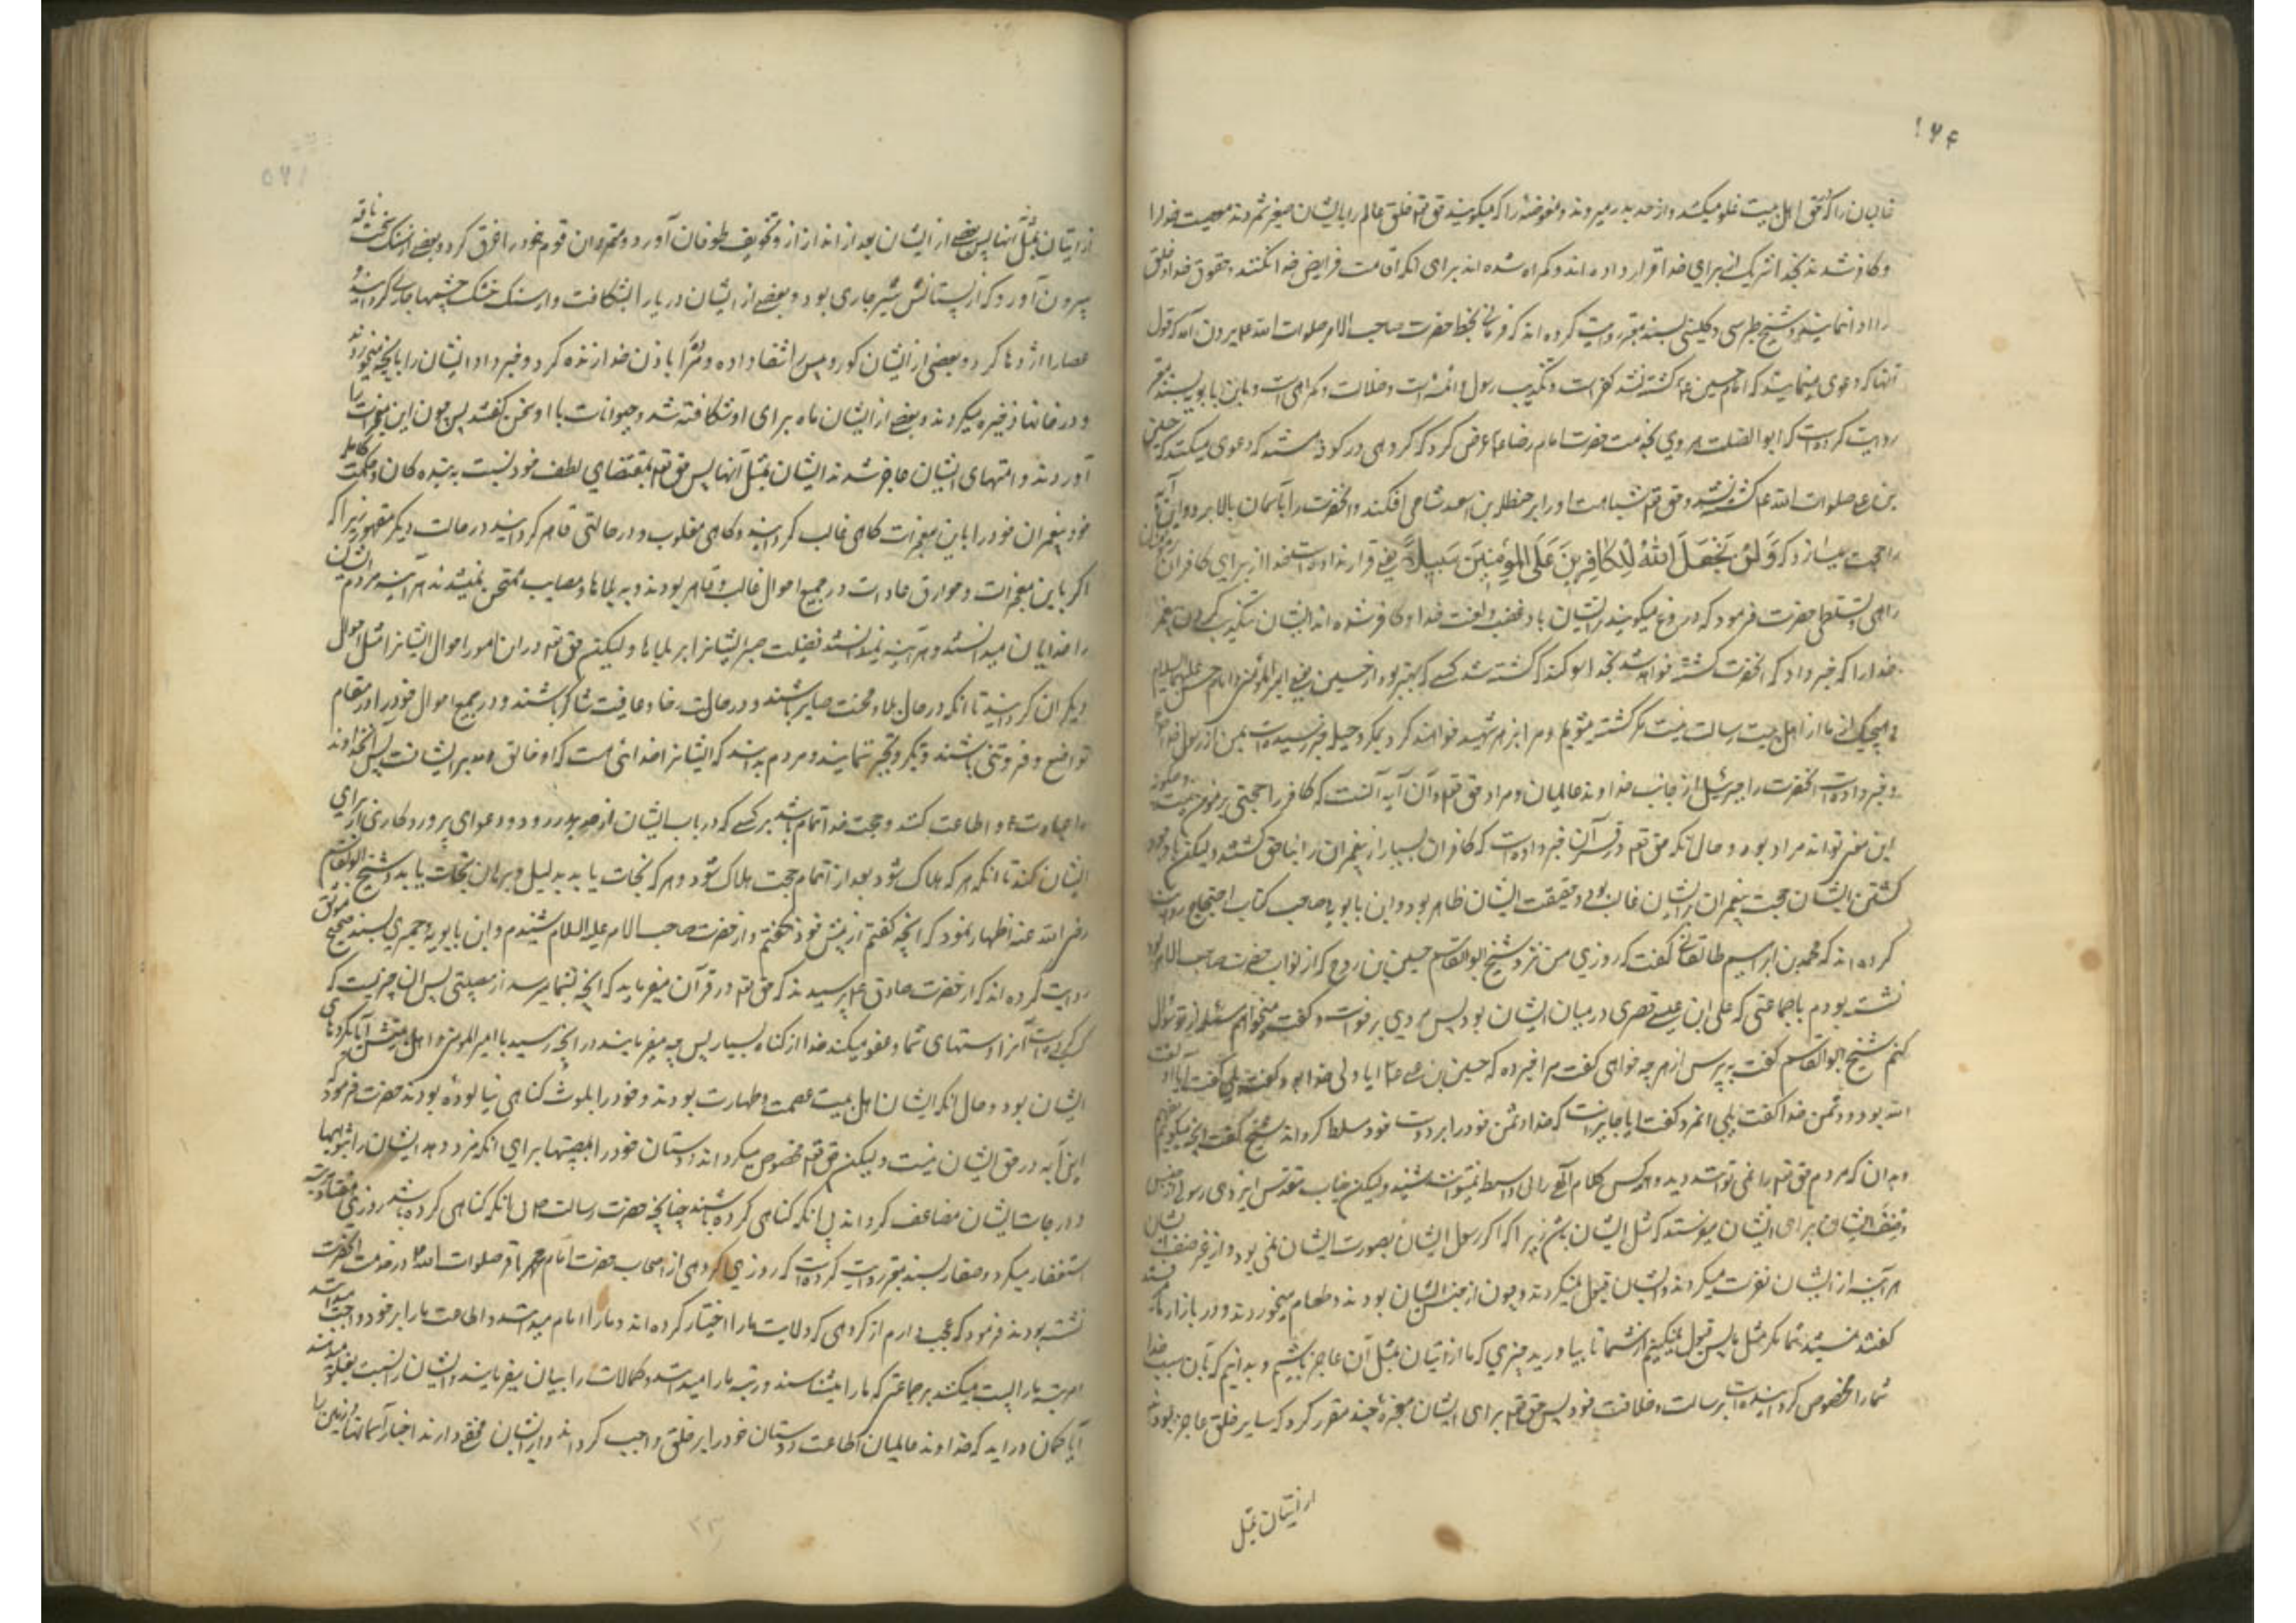 ۱۶۴
غالیان را که در حق اهل بیت غلو میکنند و از حد بدر میروند و مفوضه را که میگویند حق تعالی خلق عالم را بایشان
و کافر شدند بخدا شریک از برای خدا قرار داده اند و گمراه شده اند برای آنکه اقامت فرایض خدا نکنند و حقوق خدا و خلق
را ادا ننمایند و شیخ طبرسی و کلینی بسند معتبر روایت کرده اند که فرمانی بخط حضرت صاحب الامر صلوات الله علیه بیرون آمد که قول
آنها که دعوی مینمایند که امام حسین ع کشته نشد کفر است و تکذیب رسول و ائمه است و ضلالت و گمراهی است و ابن بابویه بسند معتبر
روایت کرده است که ابو الصلت هروی بخدمت حضرت امام رضا ع عرض کرد که گروهی در کوفه هستند که دعوی میکنند که حسین
بن علی صلوات الله علیه کشته نشد و حق تعالی شباهت او را بر حنظلة بن اسعد شامی افکند و آنحضرت را بآسمان بالا برد و این آیه
را حجت میسازند که وَلَنْ يَجْعَلَ اللهُ لِلْكَافِرِينَ عَلَى الْمُؤْمِنِينَ سَبِيلاً یعنی قرار نداده است خدا از برای کافران
راهی و تسلطی حضرت فرمود که دروغ میگویند بر ایشان باد غضب و لعنت خدا و کافر شده اند ایشان بتکذیب کردن پیغمبر
خدا را که خبر داد که آنحضرت کشته خواهد شد بخدا سوگند که کشته شد کسی که بهتر بود از حسین یعنی امیر المؤمنین و امام حسن علیهما السلام
و هیچیک از ما از اهل بیت رسالت نیست مگر کشته میشویم و مرا بزهر شهید خواهند کرد بمکر و حیله و خبر رسیده است بمن از رسول خدا
و خبر داده است آنحضرت را جبرئیل از جانب خداوند عالمیان و مراد حق تعالی در آن آیه آنست که کافر را حجتی بر مومن نیست و چگونه
این معنی تواند مراد بود و حال آنکه حق تعالی در قرآن خبر داده است که کافران بسیار از پیغمبران را بناحق کشتند و لیکن با وجود
کشتن ایشان حجت پیغمبران بر ایشان غالب بود و حقیقت ایشان ظاهر بود و ابن بابویه و صاحب کتاب احتجاج روایت
کرده اند که محمد بن ابراهیم طالقانی گفت که روزی من نزد شیخ ابو القاسم حسین بن روح که از نواب حضرت صاحب الامر بود
نشسته بودم با جماعتی که علی ابن عیسی قصری در میان ایشان بود پس مردی برخواست و گفت میخواهم مسئله از تو سوال
کنم شیخ ابو القاسم گفت به پرس از هر چه خواهی گفت مرا خبر ده که حسین بن علی ع آیا ولی خدا بود گفت بلی گفت آیا
الله بود و دشمن خدا گفت بلی آنمرد گفت آیا جایز است که خدا دشمن خود را بر دوست خود مسلط گرداند شیخ گفت آنچه میگویم
و بدان که مردم حق تعالی را نمی توانند دید و هر کس کلام الهی را بی واسطه نمیتواند شنید و لیکن جناب مقدس ایزدی رسولی از جنس
و صنف ایشان برای ایشان میفرستد که مثل ایشان بشرند زیرا که اگر رسول ایشان بصورت ایشان نمی بود و از غیر صنف ایشان
هر آینه از ایشان نفرت میکردند و از ایشان قبول نمیکردند و چون از جنس ایشان بودند و طعام میخوردند و در بازار
گفتند نیستید شما مگر مثل ما پس قبول نمیکنیم از شما تا بیاورید چیزی که ما از اتیان بمثل آن عاجز باشیم و بدانیم که بآن سبب خدا
شما را مخصوص گردانیده است برسالت و خلافت خود پس حق تعالی برای ایشان معجزهٔ چند مقرر کرد که سایر خلق عاجز بودند
از اتیان بمثل
از اتیان بمثل آنها پس بعضی از ایشان بعد از انذار و تخویف طوفان آورد و متمردان قوم خود را غرق کرد و بعضی از سنگ سخت ناقه
بیرون آورد که از پستانش شیر جاری بود و بعضی از ایشان دریا را بشکافت و از سنگ خشک چشمها جاری گردانید
عصا را اژدها کرد و بعضی از ایشان کور و پیس را شفا داده و مرده را باذن خدا زنده کرد و خبر داد ایشان را بآنچه میخوردند
و در خانها ذخیره میکردند و بعضی از ایشان ماه برای او شکافته شد و حیوانات با او سخن گفتند پس چون این معجزات را
آوردند و امتهای ایشان عاجز شدند از اتیان بمثل آنها پس حق تعالی بمقتضای لطف خود نسبت به بنده کان و حکمت کامل
خود پیغمبران خود را با این معجزات گاهی غالب گردانید و گاهی مغلوب و در حالتی قاهر گردانید و در حالت دیگر مقهور زیرا که
اگر با این معجزات و خوارق عادات در جمیع احوال غالب و قاهر بودند و به بلاها و مصایب ممتحن نمیشدند هر آینه مردم ایشان
را خدایان میدانستند و هر آینه نمیدانستند فضیلت صبر ایشانرا بر بلاها و لیکن حق تعالی در این امور احوال ایشانرا مثل احوال
دیگران گردانید تا آنکه در حال بلا و محنت صابر باشند و در حالت رخا و عافیت شاکر باشند و در جمیع احوال خود را در مقام
تواضع و فروتنی باشند و تکبر و تجبر ننمایند و مردم بدانند که ایشانرا خدائی هست که او خالق و مدبر ایشانست پس آنخداوند
را عبادت و اطاعت کنند و حجت خدا تمام باشد بر کسی که در باب ایشان از حد بدر رود و دعوای پروردگاری از برای
ایشان کند تا آنکه هر که هلاک شود بعد از اتمام حجت هلاک شود و هر که نجات یابد بدلیل و برهان نجات یابد و شیخ ابو القاسم
رضی الله عنه اظهار نمود که آنچه گفتم از پیش خود نگفتم و از حضرت صاحب الامر علیه السلام شنیدم و ابن بابویه و حمیری بسند صحیح موثق
روایت کرده اند که از حضرت صادق ع پرسیدند که حق تعالی در قرآن میفرماید که آنچه بشما میرسد از مصیبتی پس آن چیزیست که
کسب کرده است آنرا دستهای شما و عفو میکند خدا از گناه بسیار پس چه میفرمایند در آنچه رسید بامیر المومنین و اهل بیتش آیا بکردهای
ایشان بود و حال آنکه ایشان اهل بیت عصمت و طهارت بودند و خود را بلوث گناهی نیالوده بودند حضرت فرمود
این آیه در حق ایشان نیست و لیکن حق تعالی مخصوص میگرداند دوستان خود را بمصیبتها برای آنکه مزد دهد ایشان را بثوابها
و درجات ایشان مضاعف گرداند بی آنکه گناهی کرده باشند چنانچه حضرت رسالت ص بی آنکه گناهی کرده باشد روزی هفتاد مرتبه
استغفار میکرد و صفار بسند معتبر روایت کرده است که روزی گروهی از اصحاب حضرت امام محمد باقر صلوات الله علیه در خدمت آنحضرت
نشسته بودند فرمود که عجب دارم از گروهی که ولایت ما را اختیار کرده اند و ما را امام میدانند و اطاعت ما را بر خود واجب میدانند
مرتبهٔ ما را پست میکنند بر جماعتی که ما را میشناسند و رتبه ما را میدانند و کمالات ما را بیان میفرمایند و ایشان را نسبت بغلو میدهند
آیا گمان دارید که خداوند عالمیان اطاعت دوستان خود را بر خلق واجب گرداند و از ایشان مخفی دارند اخبار آسمانها و زمین را